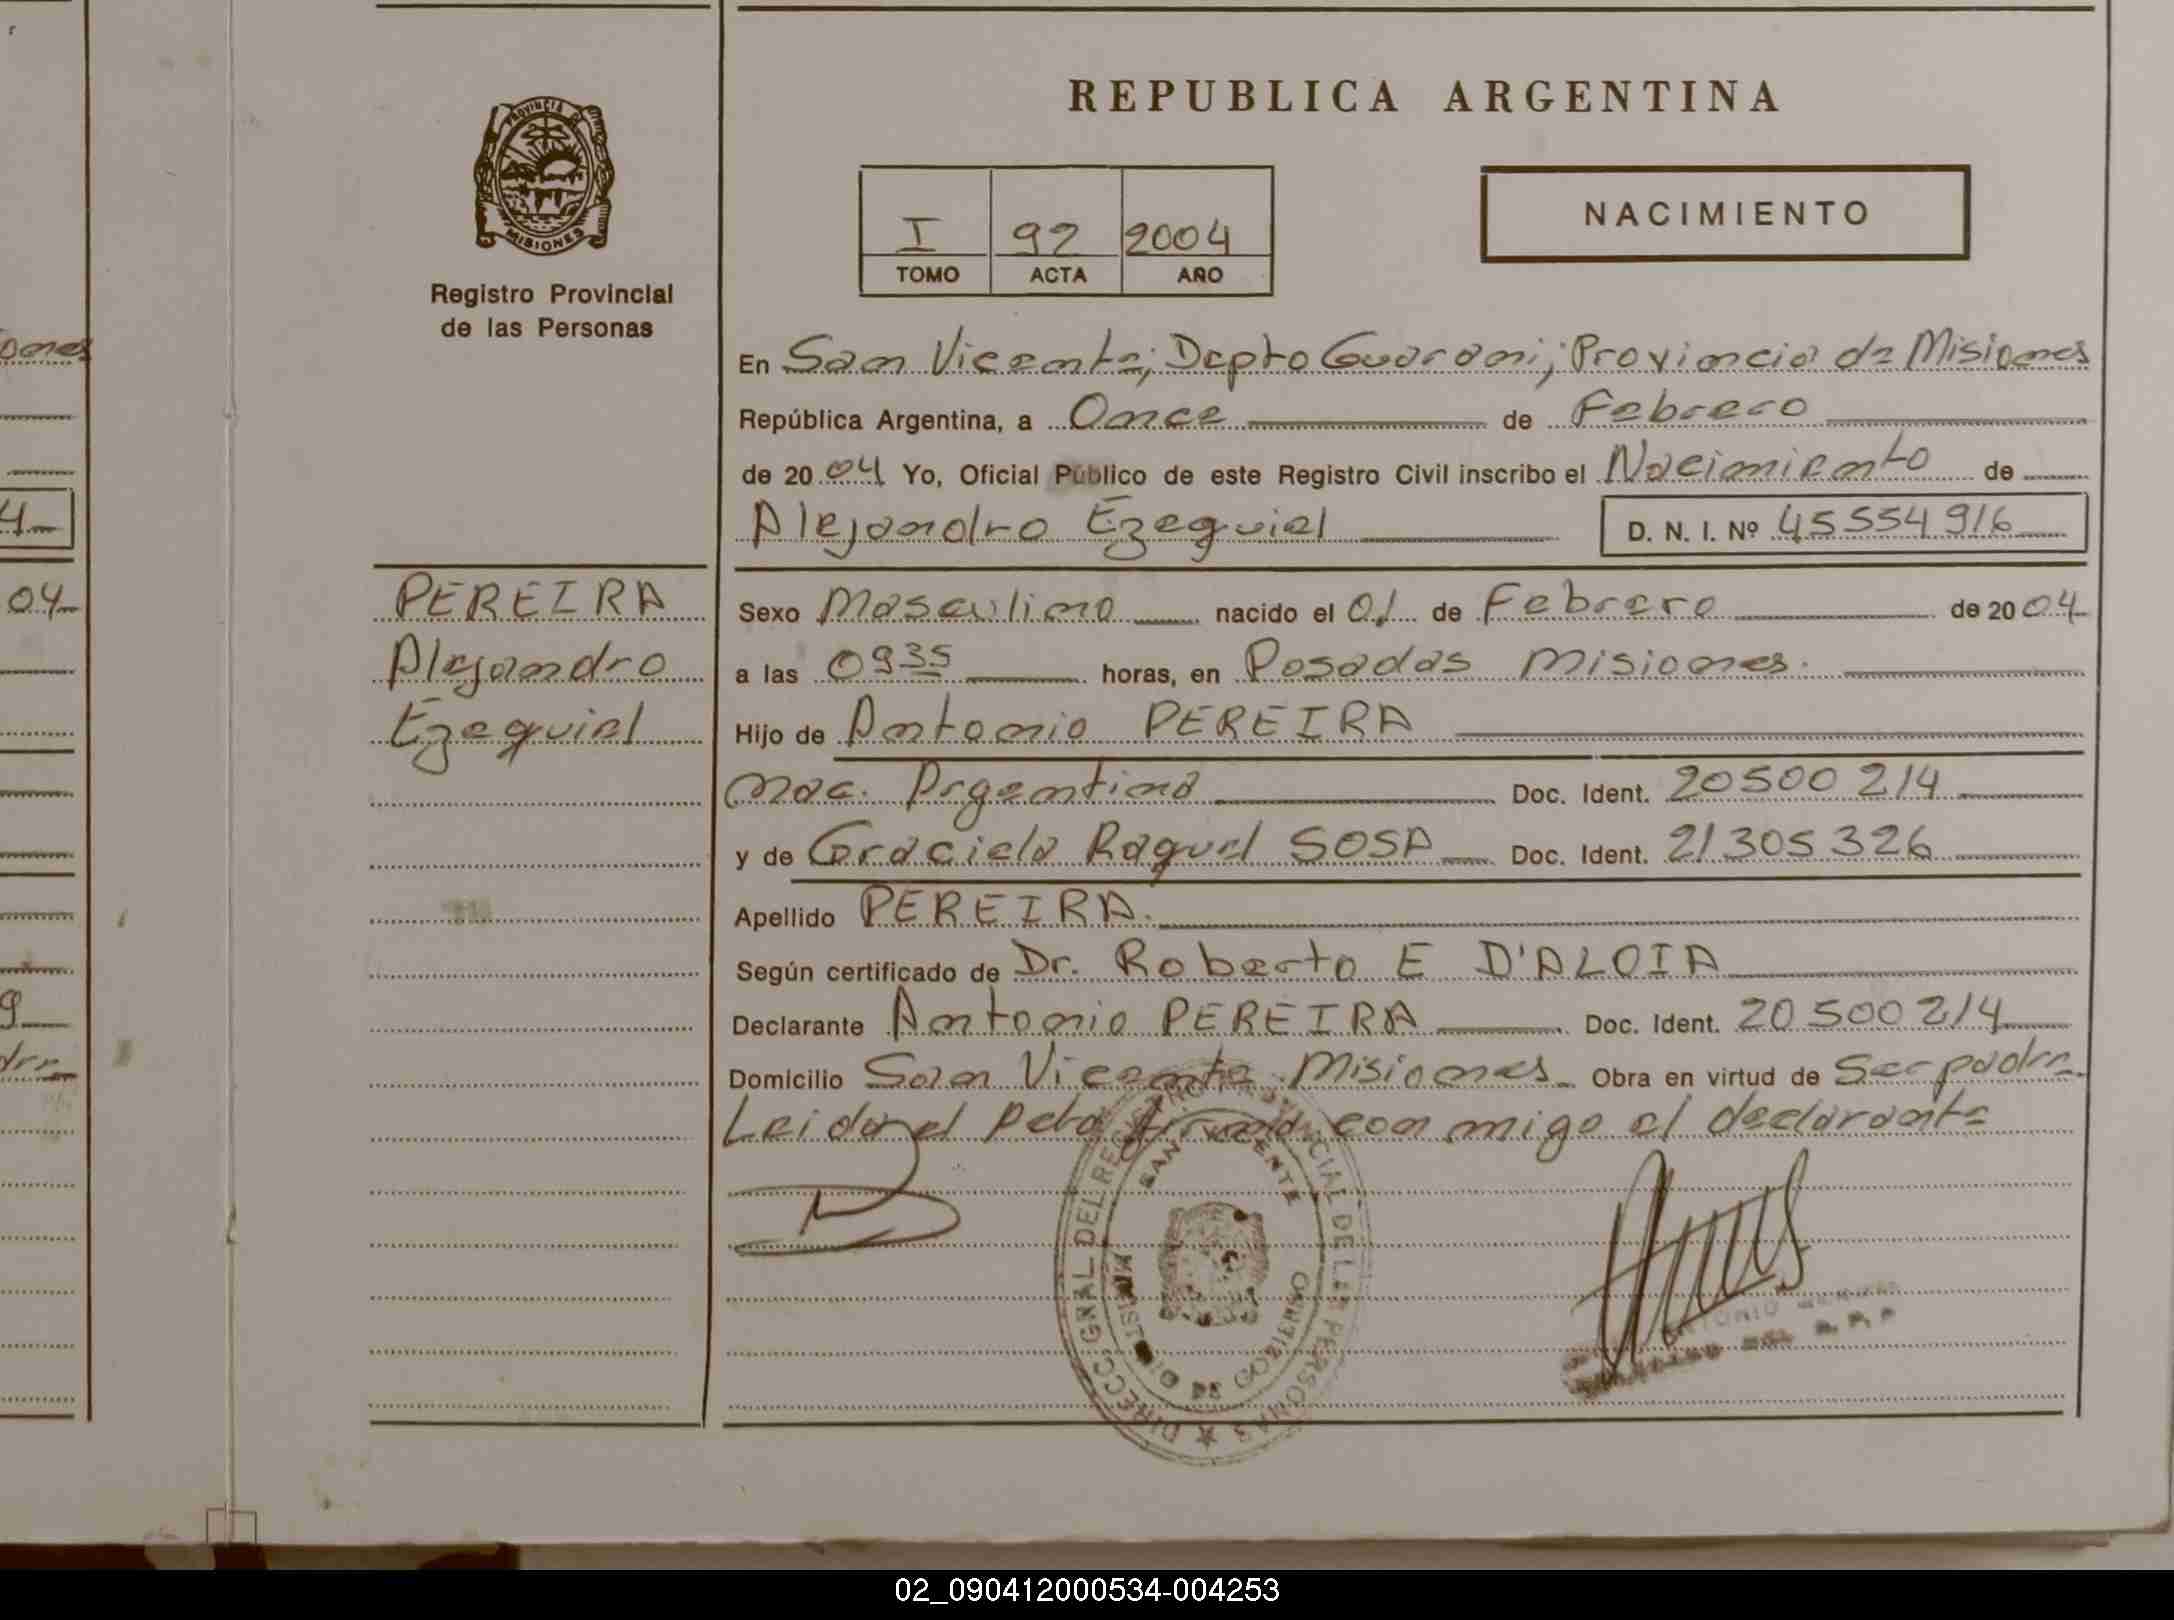 REPUBLICA ARGENTINA
PROVINCIA DE
MISIONES
Registro Provincial
de las Personas
I 92 2004
TOMO ACTA AÑO
NACIMIENTO
En San Vicente; Depto Guarani; Provincia de Misiones
República Argentina, a Once de Febrero
de 2004 Yo, Oficial Público de este Registro Civil inscribo el Nacimiento de
Alejandro Ezequiel D. N. I. Nº 45554916
PEREIRA
Alejandro
Ezequiel
Sexo Masculino nacido el 01 de Febrero de 2004
a las 0935 horas, en Posadas Misiones.
Hijo de Antonio PEREIRA
nac. Argentina Doc. Ident. 20500214
y de Graciela Raquel SOSA Doc. Ident. 21305326
Apellido PEREIRA.
Según certificado de Dr. Roberto E D'ALOIA
Declarante Antonio PEREIRA Doc. Ident. 20500214
Domicilio San Vicente Misiones Obra en virtud de Ser padre
Leida el Acta firma con migo el declarante
DIRECC. GRAL. DEL REGISTRO PROVINCIAL DE LAS PERSONAS
SAN VICENTE
MINISTERIO DE GOBIERNO
ones
4
04
9
dre
02_090412000534-004253